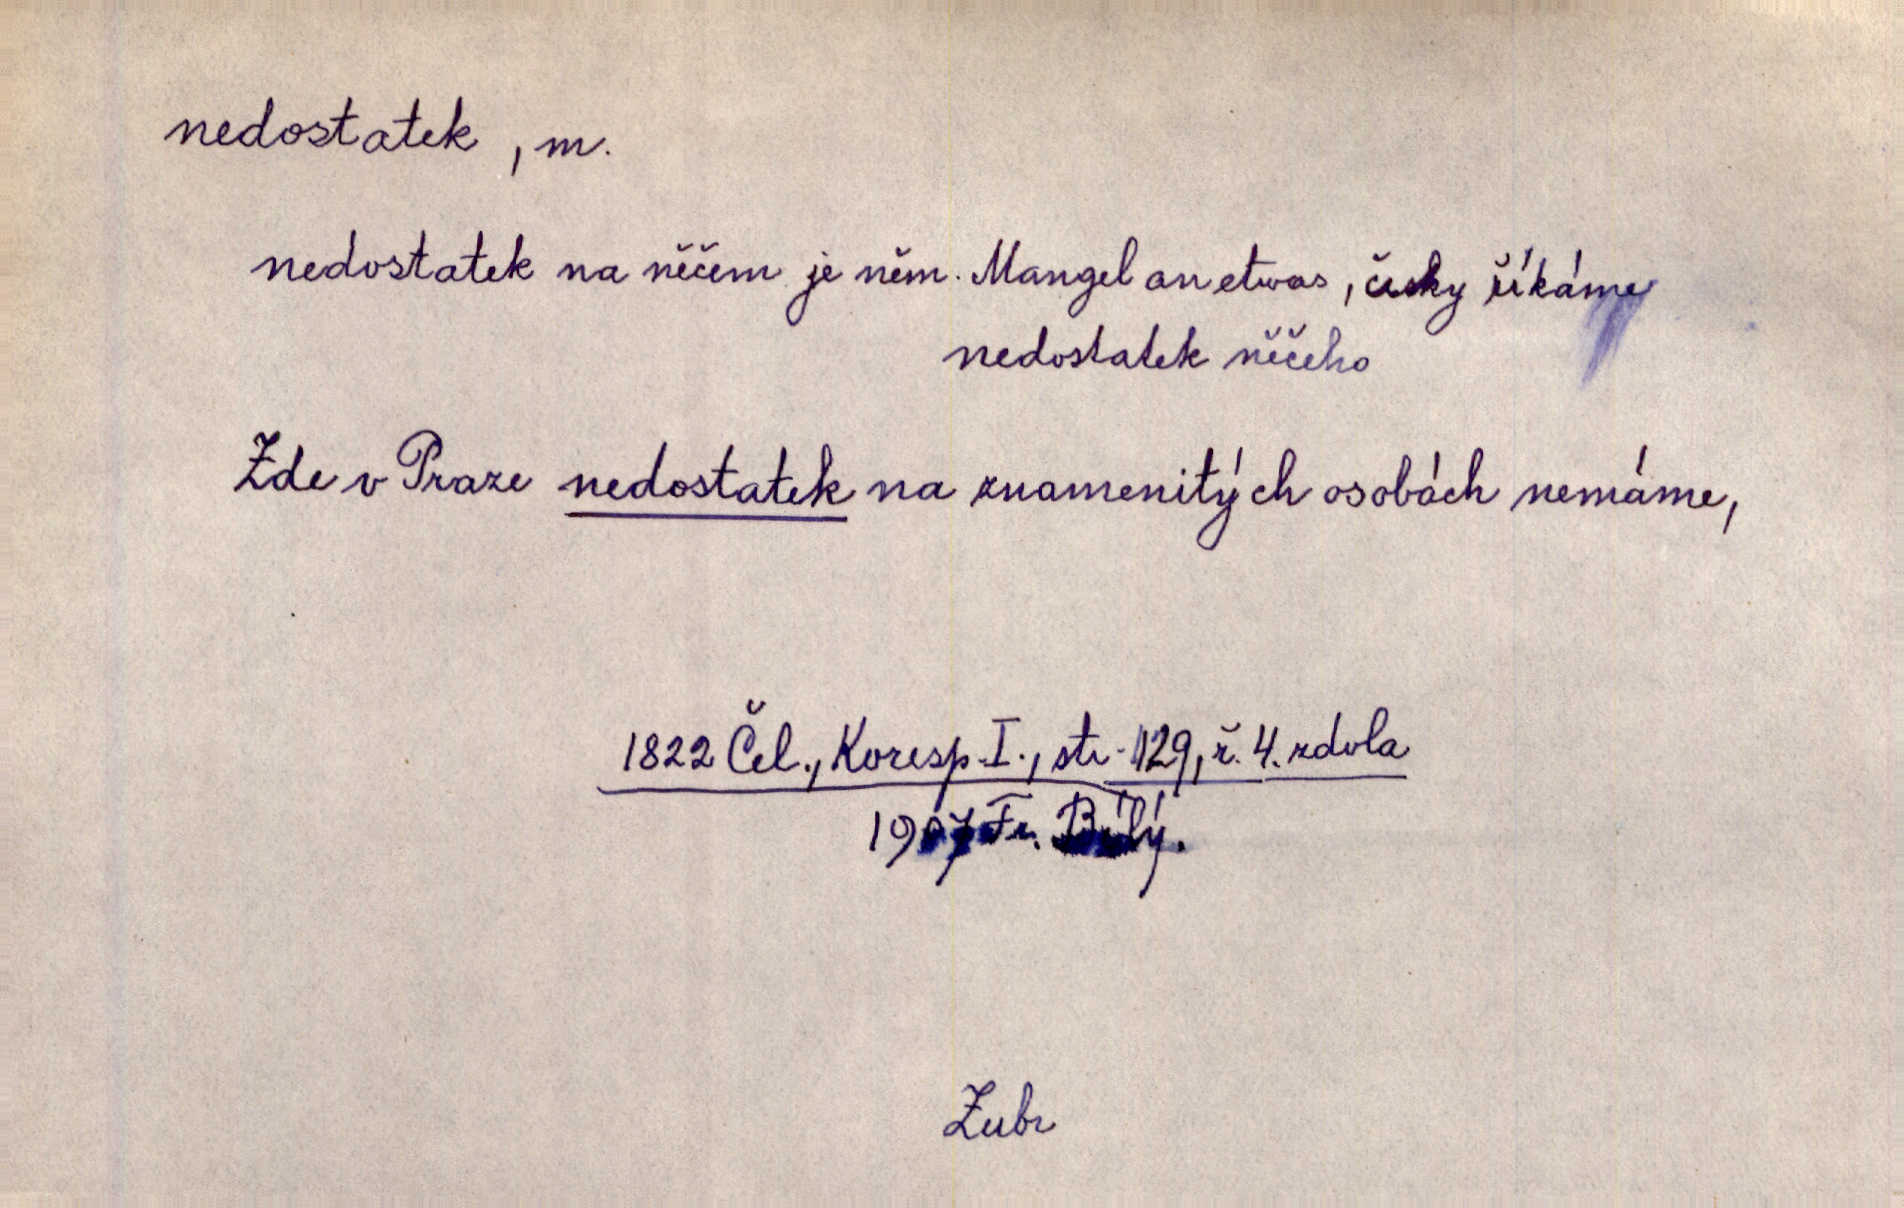 nedostatek, m.
nedostatek na něčem je něm. Mangel an etwas, česky říkáme
nedostatek něčeho
Zde v Praze nedostatek na znamenitých osobách nemáme,
1822 Čel., Koresp. I., str. 129, ř. 4. zdola
1907 Fr. Bílý.
Zubr